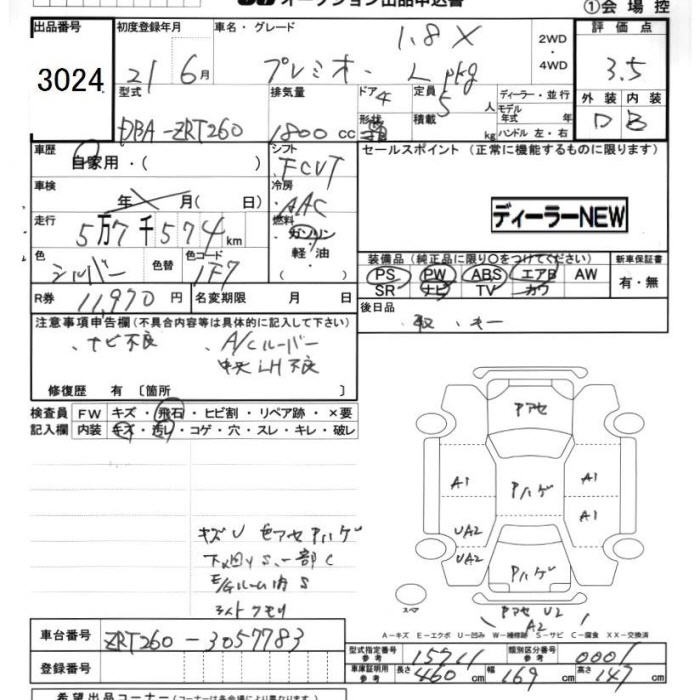 オークション出品申込書
①会場控
出品番号
3024
初度登録年月
21 6月
車名・グレード
プレミオ・ 1.8X Lpkg
2WD
・
4WD
評価点
3.5
外装 内装
D B
型式
DBA-ZRT260
排気量
1800cc
ドア 4
形状
定員 5人
積載 kg
ディーラー・並行
モデル
年式 年
ハンドル 左・右
車歴
自家用・( )
シフト
FCVT
セールスポイント (正常に機能するものに限ります)
車検
年 月( 日)
冷房
AAC
ディーラーNEW
走行
5万7千574km
燃料
・ガソリン
・軽油
・( )
色
シルバー
色替
色コード
1F7
装備品 (純正品に限り〇をつけてください)
PS PW ABS エアB AW
SR ナビ TV カワ
新車保証書
有・無
R券 11,970円
名変期限 月 日
後日品
取・キー
注意事項申告欄 (不具合内容等は具体的に記入して下さい)
、ナビ不良 、A/Cルーバー
中央LH不良
修復歴 有〔箇所 〕
検査員
記入欄
FW キズ・飛石・ヒビ割・リペア跡・×要
内装 キズ・汚レ・コゲ・穴・スレ・キレ・破レ
アアセ
A1 Aハゲ A1
A1
UA2
UA2 Aハゲ
スペア
アアセ U2
A2
キズU 色アセ Aハゲ
下廻りS、一部C
E/Gルーム内S
ライトクモリ
A-キズ E-エクボ U-凹み W-補修跡 S-サビ C-腐食 XX-交換済
車台番号
ZRT260-3057783
登録番号
型式指定番号
参考
15711
類別区分番号
参考
0001
車庫証明用
参考
長さ 460cm
幅 169cm
高さ 147cm
希望出品コーナー (コーナーは各会場により異なります)